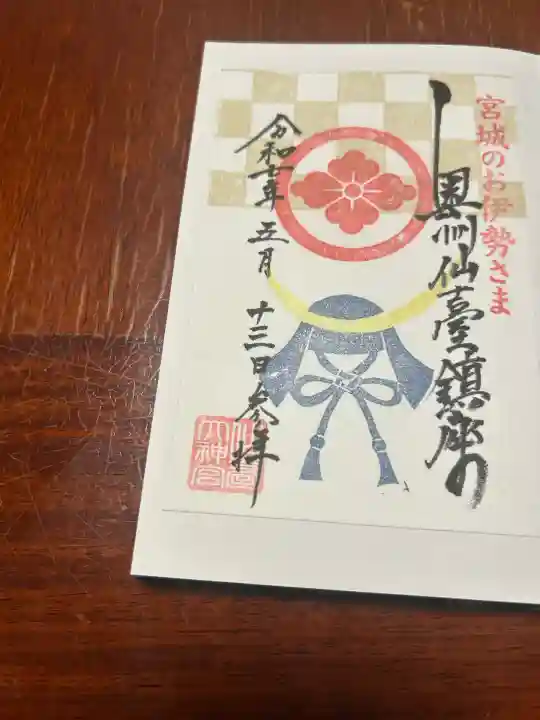 宮城のお伊勢さま
奥州仙臺鎮座の
令和七年五月十三日参拝
仙臺
大神宮